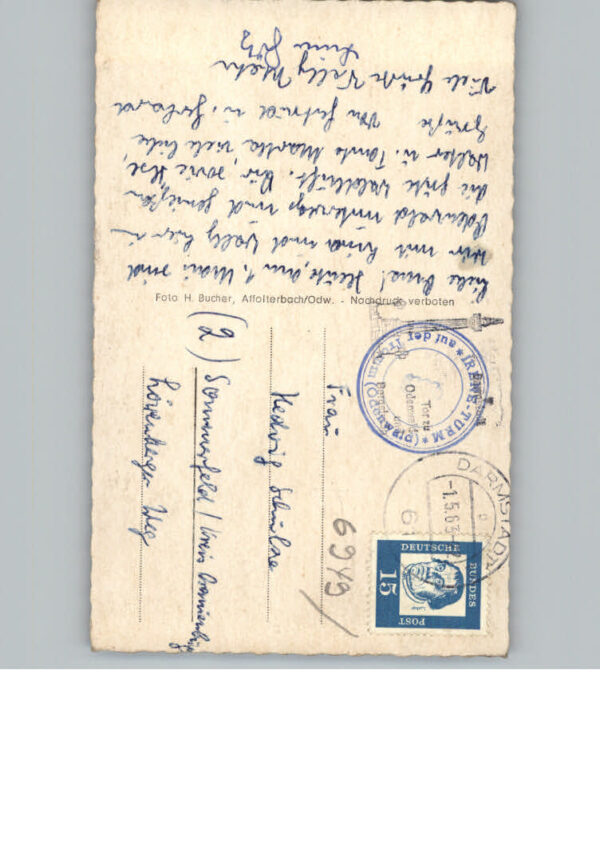 Liebe Oma! Heute, am 1. Mai sind
wir mit Lina und Wally hier im
Odenwald unterwegs und genießen
die gute Waldluft. Dir, sowie Ilse,
Walter u. Tante Martha viele liebe
Grüße von Gertrud u. Gerhard
Viele Grüße Wally
Lina
Foto H. Bucher, Affolterbach/Odw. - Nachdruck verboten
Frau
Hedwig Schulze
(2) Sommerfeld / Kreis Oranienburg
Löwenberger Weg
6949
IRENE-TURM
auf der Tromm (Odw)
Tor zu
DARMSTADT
-1.5.63
DEUTSCHE
BUNDES
POST
15